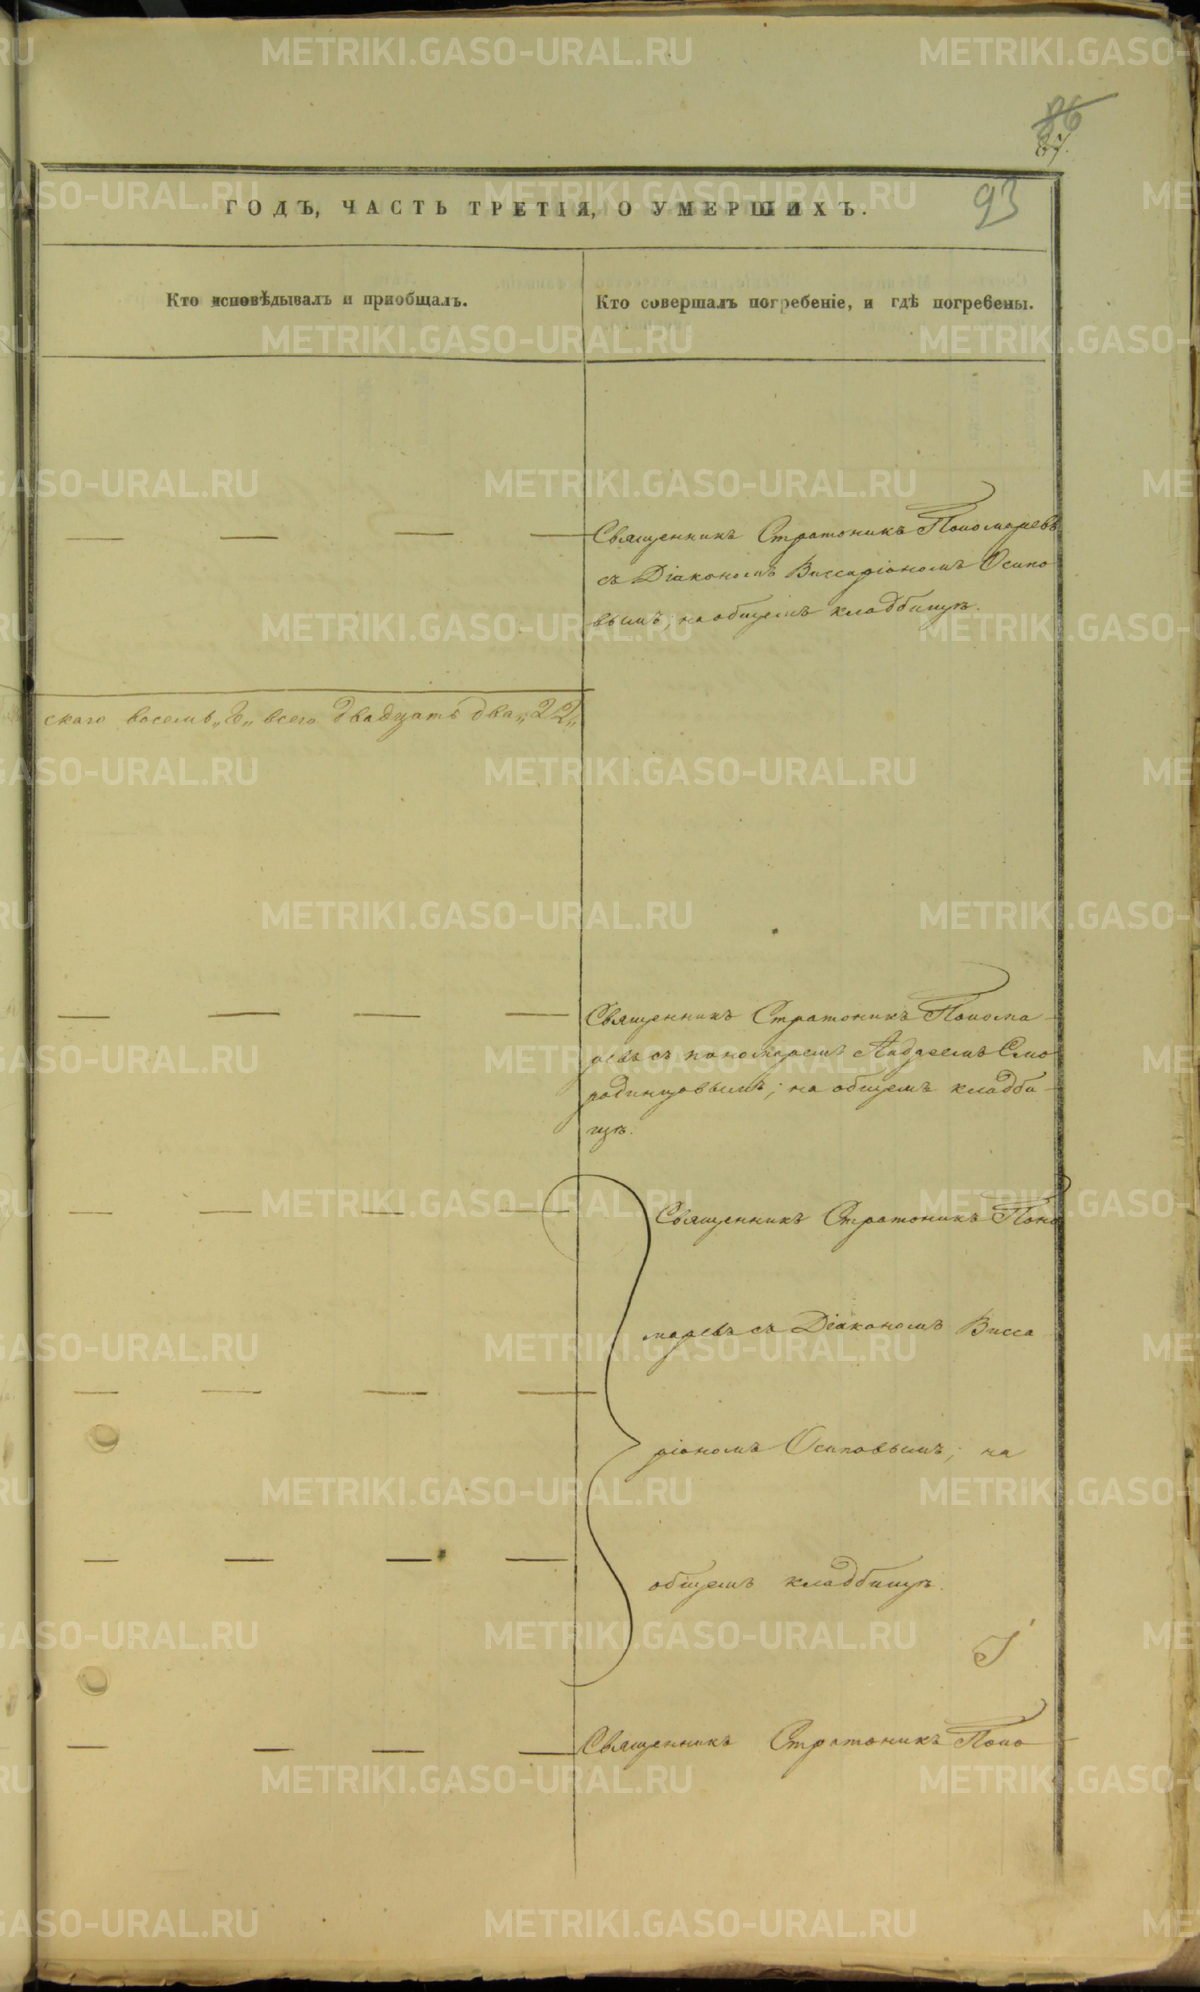 86
87.
93
ГОДЪ, ЧАСТЬ ТРЕТІЯ, О УМЕРШИХЪ.
Кто исповѣдывалъ и приобщалъ.
Кто совершалъ погребеніе, и гдѣ погребены.
Священникъ Стратоникъ Пономаревъ
съ Діакономъ Виссаріономъ Осипо
вымъ, на общемъ кладбищѣ.
скаго восемь „8„ всего двадцать два „22„
Священникъ Стратоникъ Понома
ревъ съ пономаремъ Андреемъ Смо
родинцовымъ; на общемъ кладби
щѣ.
Священникъ Стратоникъ Поно
маревъ съ Діакономъ Висса
ріономъ Осиповымъ; на
общемъ кладбищѣ.
Священникъ Стратоникъ Поно
METRIKI.GASO-URAL.RU